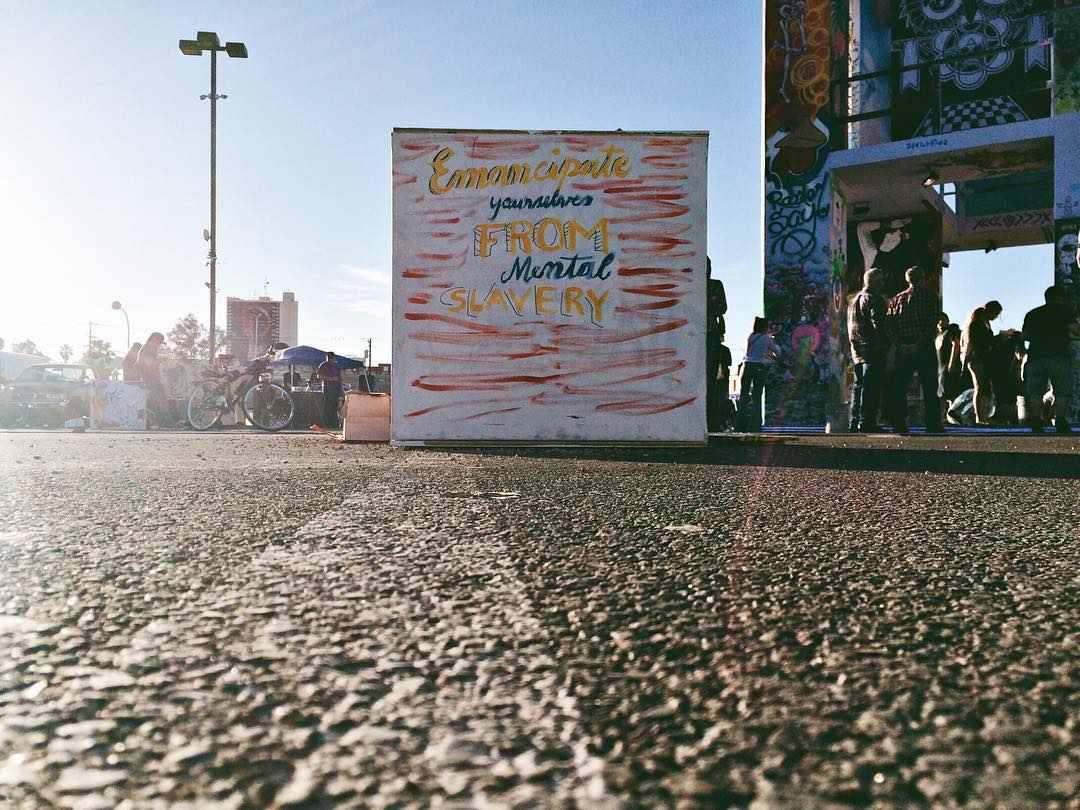 Emancipate
yourselves
FROM
Mental
SLAVERY